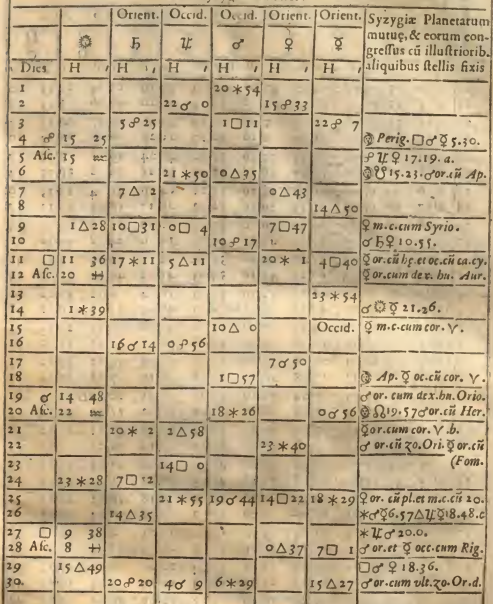 Orient. Occid. Occid. Orient. Orient. Syzygiæ Planetarum
mutuę, & eorum con-
☼ ♄ ♃ ♂ ♀ ☿ greſſus cũ illuſtriorib.
Dies H ′ H ′ H ′ H ′ H ′ H aliquibus ſtellis fixis
1 20⚹54
2 22☌ 0 15☍33
3 5☍25 1□11 22☍ 7
4 ☍ 15 25 Perig. □♂☿ 5.30.
5 Aſc. 15 ♒ ☍♃♀ 17.19. a.
6 21⚹50 0△35 ☋ 15.23. ♂or.cũ Ap.
7 7△ 2 0△43
8 14△50
9 1△28 10□31 0□ 4 7□47 ♀ m.c.cum Syrio.
10 10☍17 ☌♄♀ 10.55.
11 □ 11 36 17⚹11 5△11 20⚹ 1 4□40 ☿or.cũ hę.et oc.cũ ca.cy.
12 Aſc. 20 ♓ ☿or.cum dex. hu. Aur.
13 23⚹54
14 1⚹39 ☌☼☿ 21.26.
15 10△ 0 Occid. ☿ m.c.cum cor. ♈.
16 16☌14 0☍56
17 7☌50
18 1□57 Ap. ☿ oc.cũ cor. ♈.
19 ☌ 14 48 ♂or. cum dex.hu.Orio.
20 Aſc. 22 ♒ 18⚹26 0☌56 ☊19.57♂or.cũ Her.
21 20⚹ 2 2△58 ☿or.cum cor.♈.b.
22 23⚹40 ♂or.cũ zo.Ori.☿or.cũ
23 14□ 0 (Fom.
24 23⚹28 7□12
25 21⚹55 19☌44 14□22 18⚹29 ♀or. cũ pl.et m.c.cũ zo.
26 14△35 ⚹♂☿6.57△♃☿18.48.c
27 □ 9 38 ⚹♃♂ 20.0.
28 Aſc. 8 ♓ 0△37 7□ 1 ♂or.et ☿ occ.cum Rig.
29 15△49 □♂♀ 18.36.
30. 20☍20 4☌ 9 6⚹29 15△27 ♂or.cum vlt.zo.Or.d.